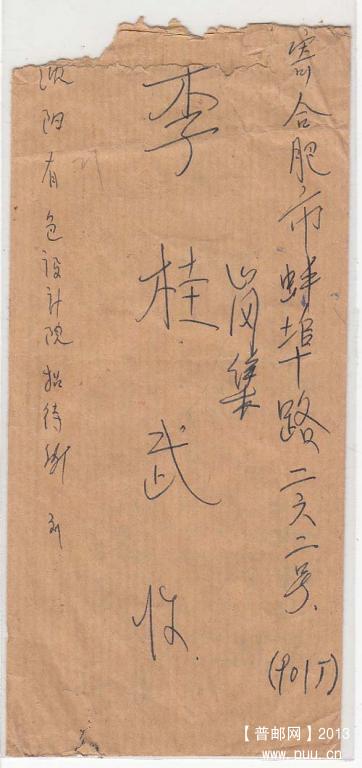 寄合肥市蚌埠路二六二号
岗集
(901厂)
李桂武收
沈阳有色设计院招待所 刘
【普邮网】2013
www.puu.cn